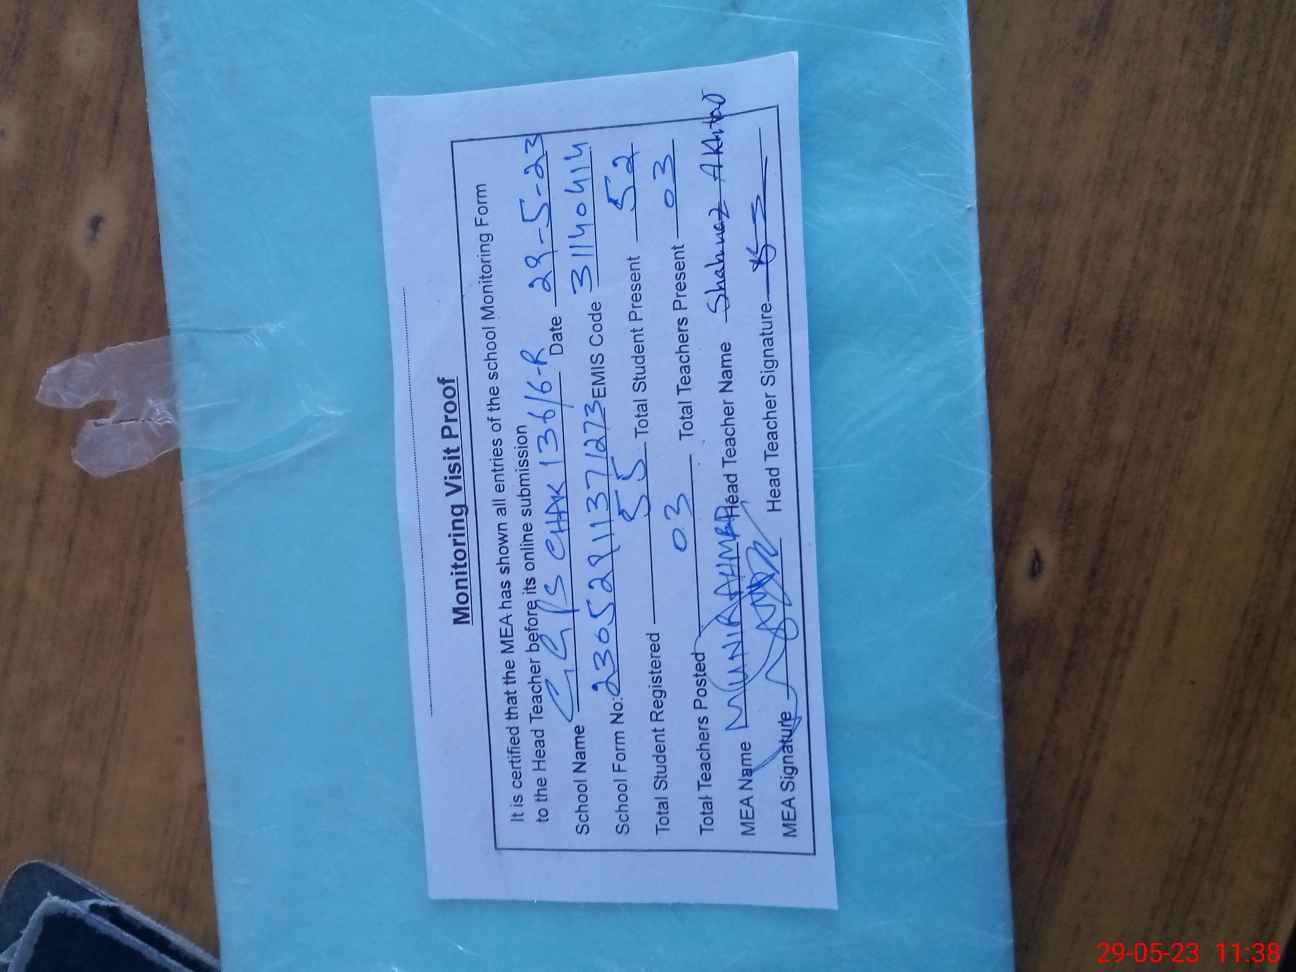 Monitoring Visit Proof
It is certified that the MEA has shown all entries of the school Monitoring Form
to the Head Teacher before its online submission
School Name GGPS CHAK 136/6-R Date 29-5-23
School Form No: 23052911371273 EMIS Code 31140414
Total Student Registered 55 Total Student Present 52
Total Teachers Posted 03 Total Teachers Present 03
MEA Name MUNIR AHMAD Head Teacher Name Shahnaz Akhtar
MEA Signature Head Teacher Signature
29-05-23 11:38